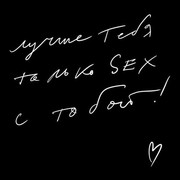 лучше тебя
только SEX
с тобой!